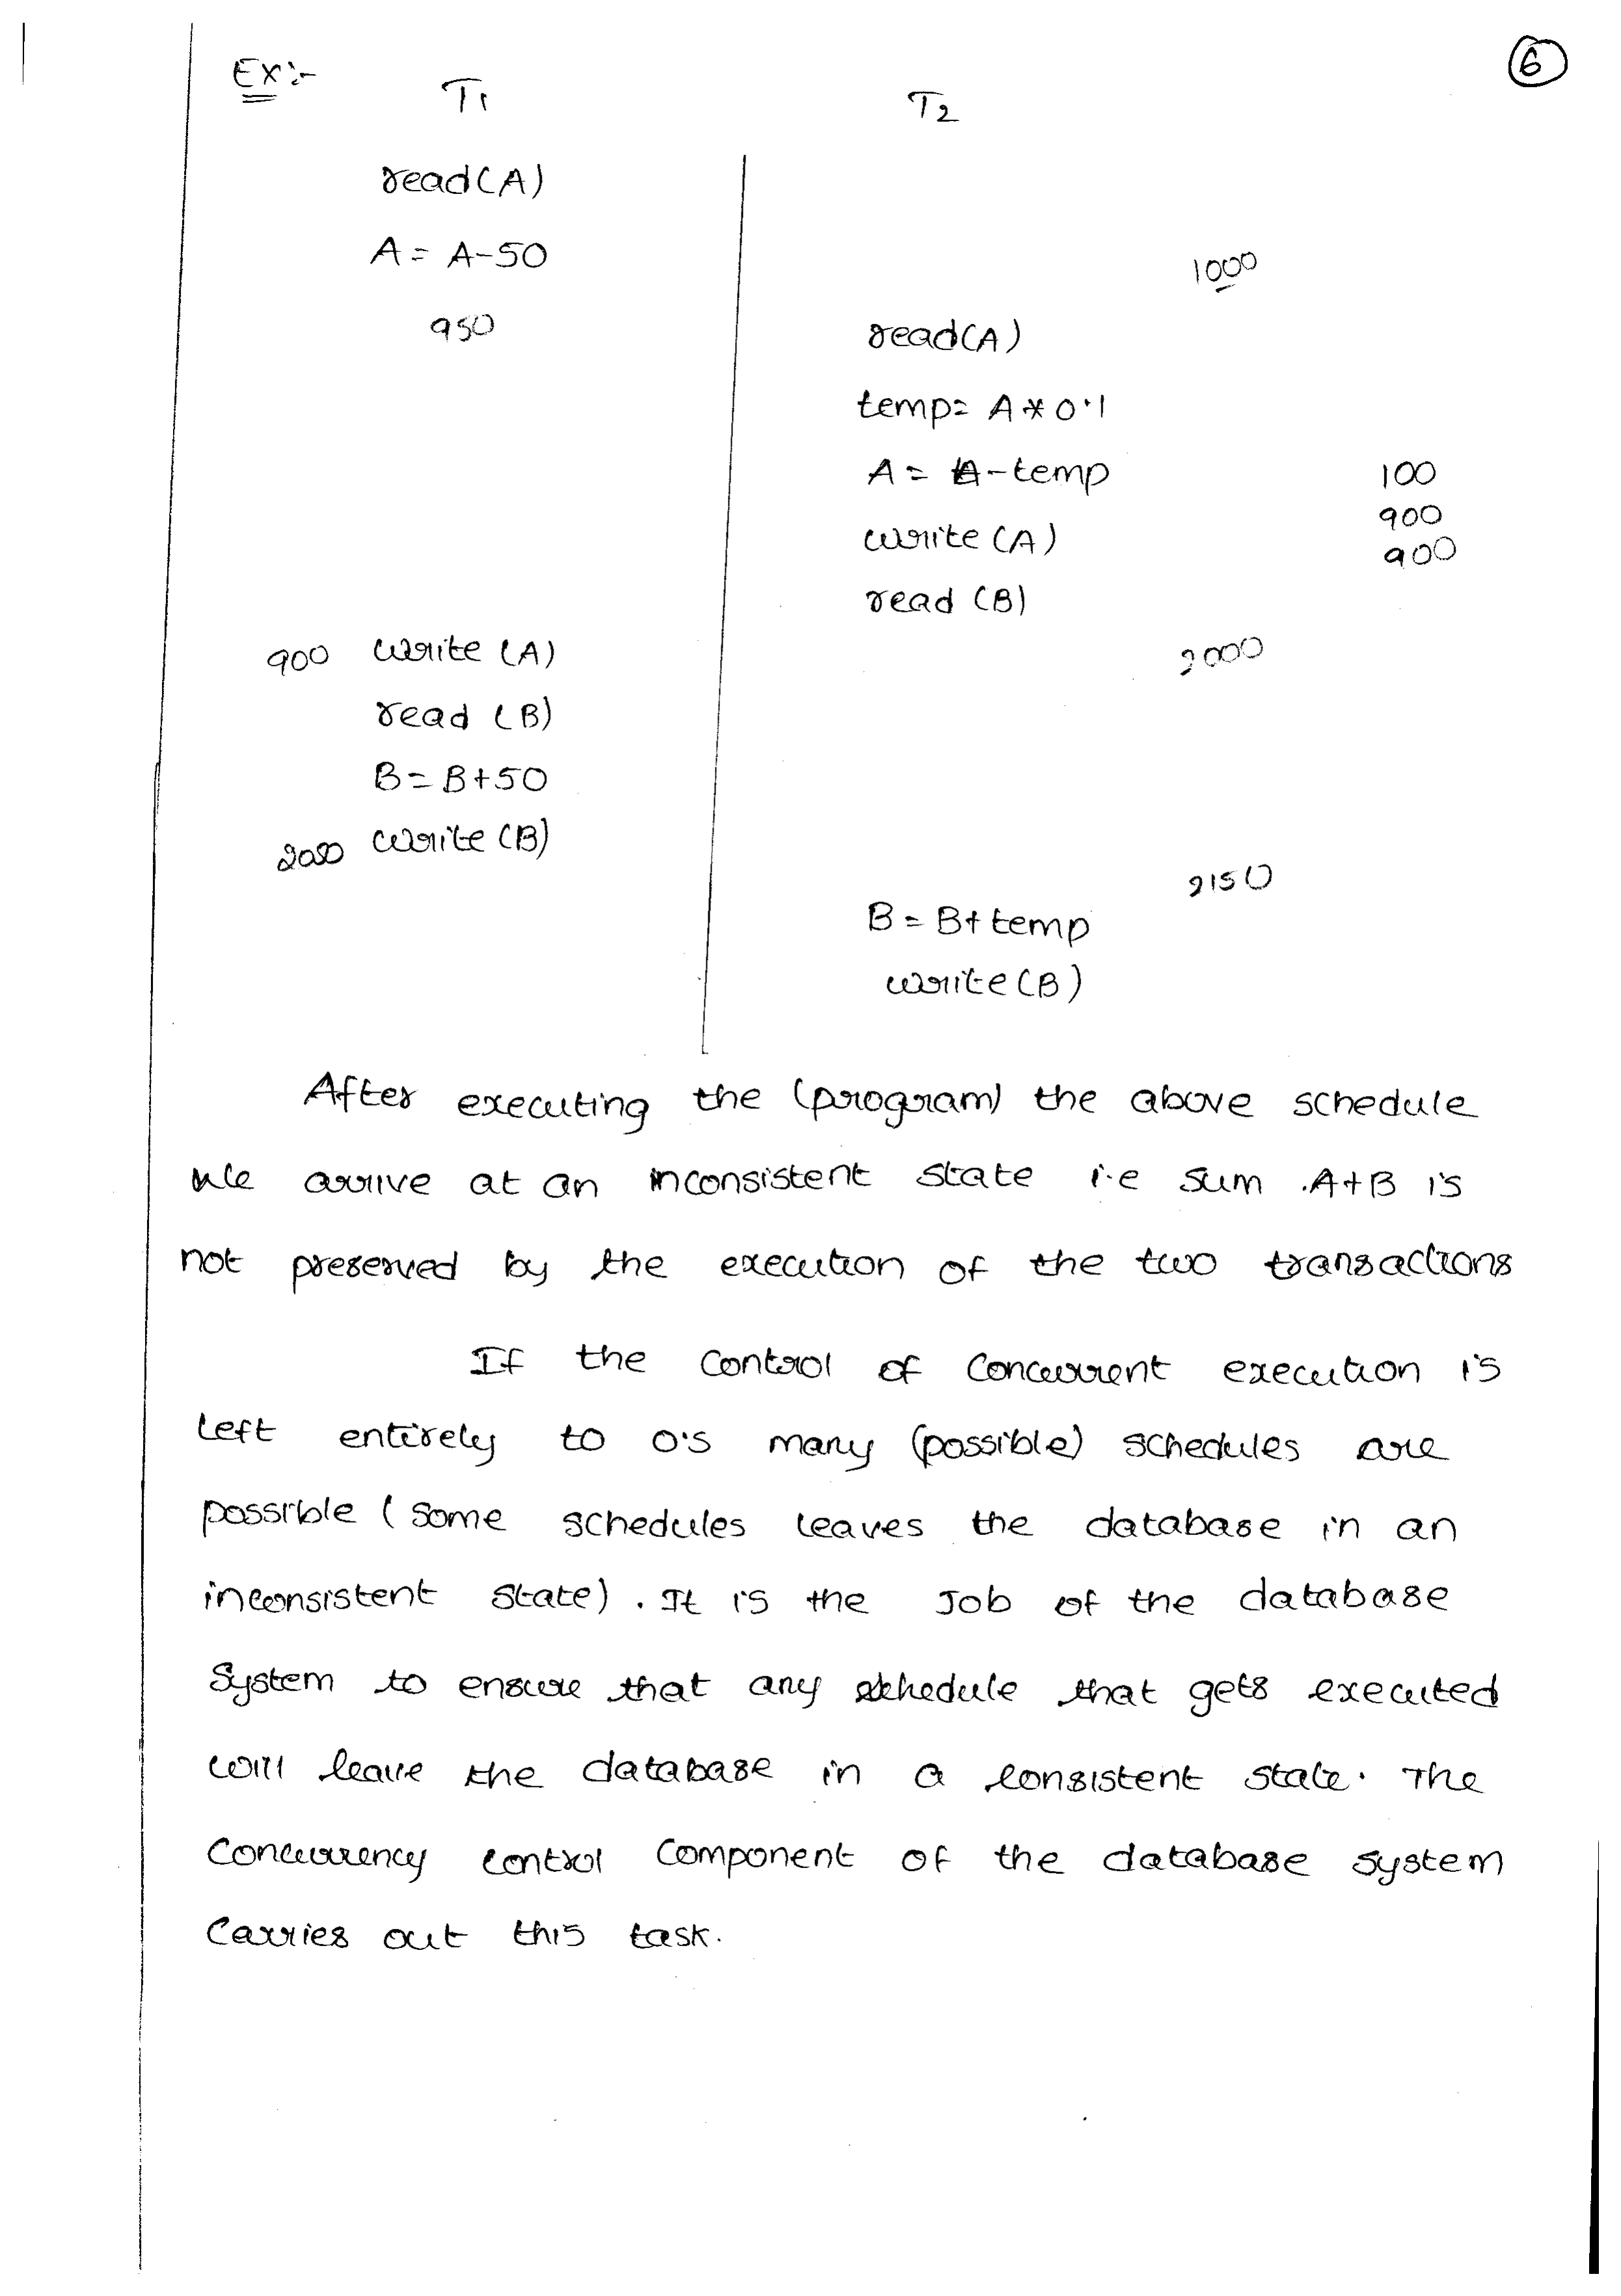 Ex:-
6
T1 T2
read(A)
A = A-50
1000
950
read(A)
temp= A*0.1
A = A-temp 100
900
write (A)
900
read (B)
900 write (A) 2000
read (B)
B = B+50
write (B)
2150
B = B+ temp
write(B)
After executing the (program) the above schedule
we arrive at an inconsistent state i.e sum A+B is
not preserved by the execution of the two transactions
If the control of concurrent execution is
left entirely to O'S many (possible) schedules are
possible (some schedules leaves the database in an
inconsistent state). It is the Job of the database
System to ensure that any schedule that gets executed
will leave the database in a consistent state. The
Concurrency control component of the database system
Carries out this task.